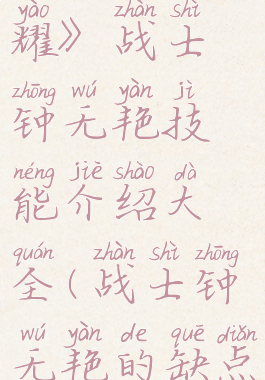 yào zhàn shì
耀》 战士
zhōng wú yàn jì
钟无艳技
néng jiè shào dà
能介绍大
quán zhàn shì zhōng
全（战士钟
wú yàn de quē diǎn
无艳的缺点